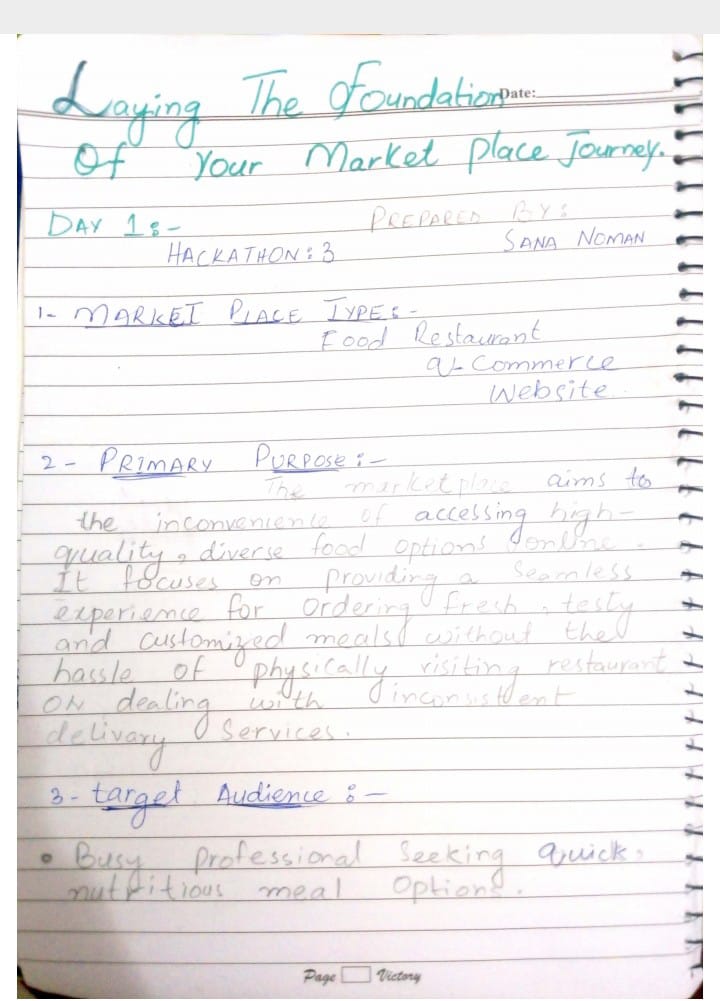 Date:
Laying The Foundation
Of Your Market place Journey.
DAY 1:-
PREPARED BY:
HACKATHON: 3
SANA NOMAN
1- MARKET PLACE TYPE:-
Food Restaurant
Q-Commerce
Website.
2- PRIMARY PURPOSE:-
The marketplace aims to
the inconvenience of accessing high-
quality, diverse food options online.
It focuses on providing a seamless
experience for ordering fresh, testy
and customized meals without the
hassle of physically visiting restaurant
or dealing with inconsistent
delivary Services.
3- target Audience :-
• Busy professional Seeking quick,
nutritious meal Options.
Page Victory